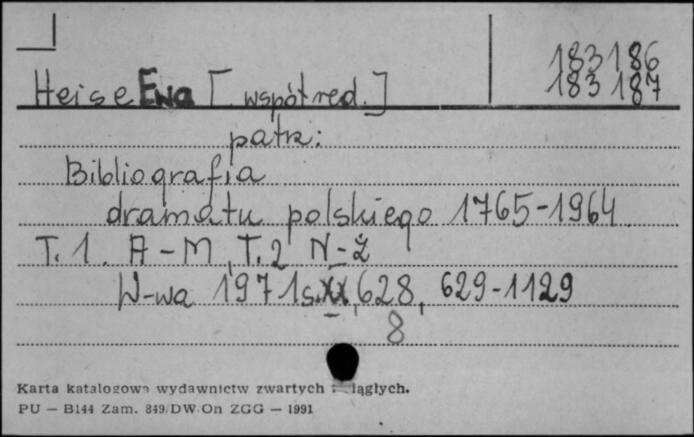 183186
183187
Heise Ewa [współred.]
patrz:
Bibliografia
dramatu polskiego 1765-1964
T. 1. A-M, T. 2 N-Ż
W-wa 1971 s. XX, 628, 629-1129
8
Karta katalogowa wydawnictw zwartych ciągłych.
PU — B144 Zam. 849/DW/On ZGG — 1991